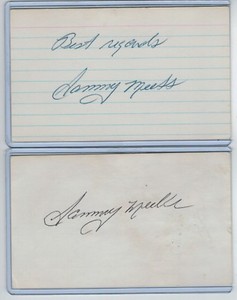 Best regards
Sammy Meeks
Sammy Meeks